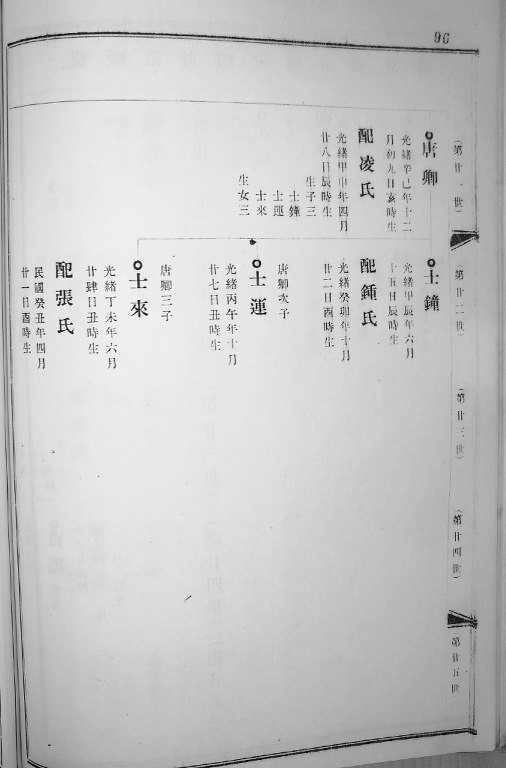 96
(第廿一世)
唐卿
光緒辛巳年十二
月初九日亥時生
配凌氏
光緒甲申年四月
廿八日辰時生
生子三
士鐘
士運
士來
生女三
(第廿二世)
士鐘
光緒甲辰年六月
十五日辰時生
配鍾氏
光緒癸卯年十月
廿二日酉時生
唐卿次子
士運
光緒丙午年十月
廿七日丑時生
唐卿三子
士來
光緒丁未年六月
廿肆日丑時生
配張氏
民國癸丑年四月
廿一日酉時生
(第廿三世)
(第廿四世)
第廿五世